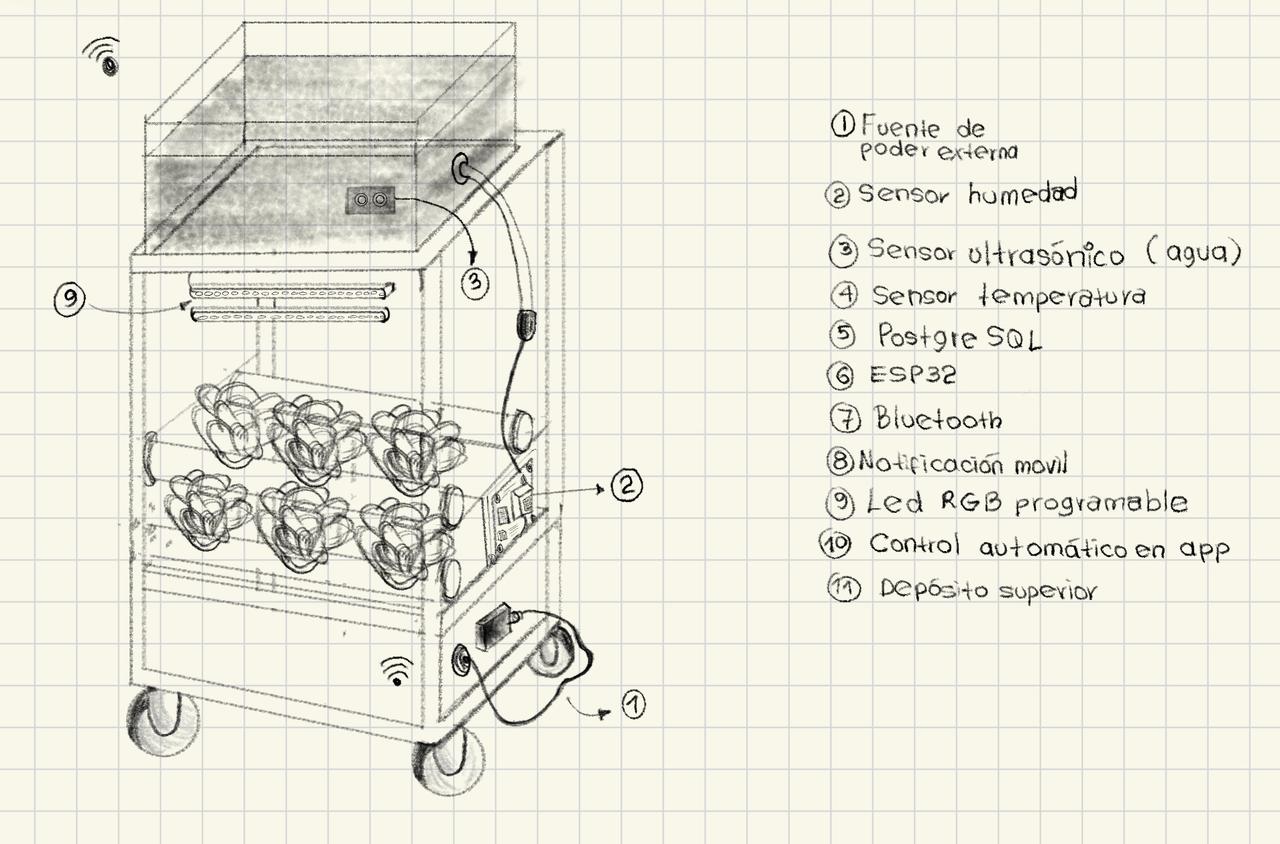 ① Fuente de
poder externa
② Sensor humedad
③ Sensor ultrasónico (agua)
④ Sensor temperatura
⑤ Postgre SQL
⑥ ESP32
⑦ Bluetooth
⑧ Notificación movil
⑨ Led RGB programable
⑩ Control automático en app
⑪ Depósito superior
③
⑨
②
①